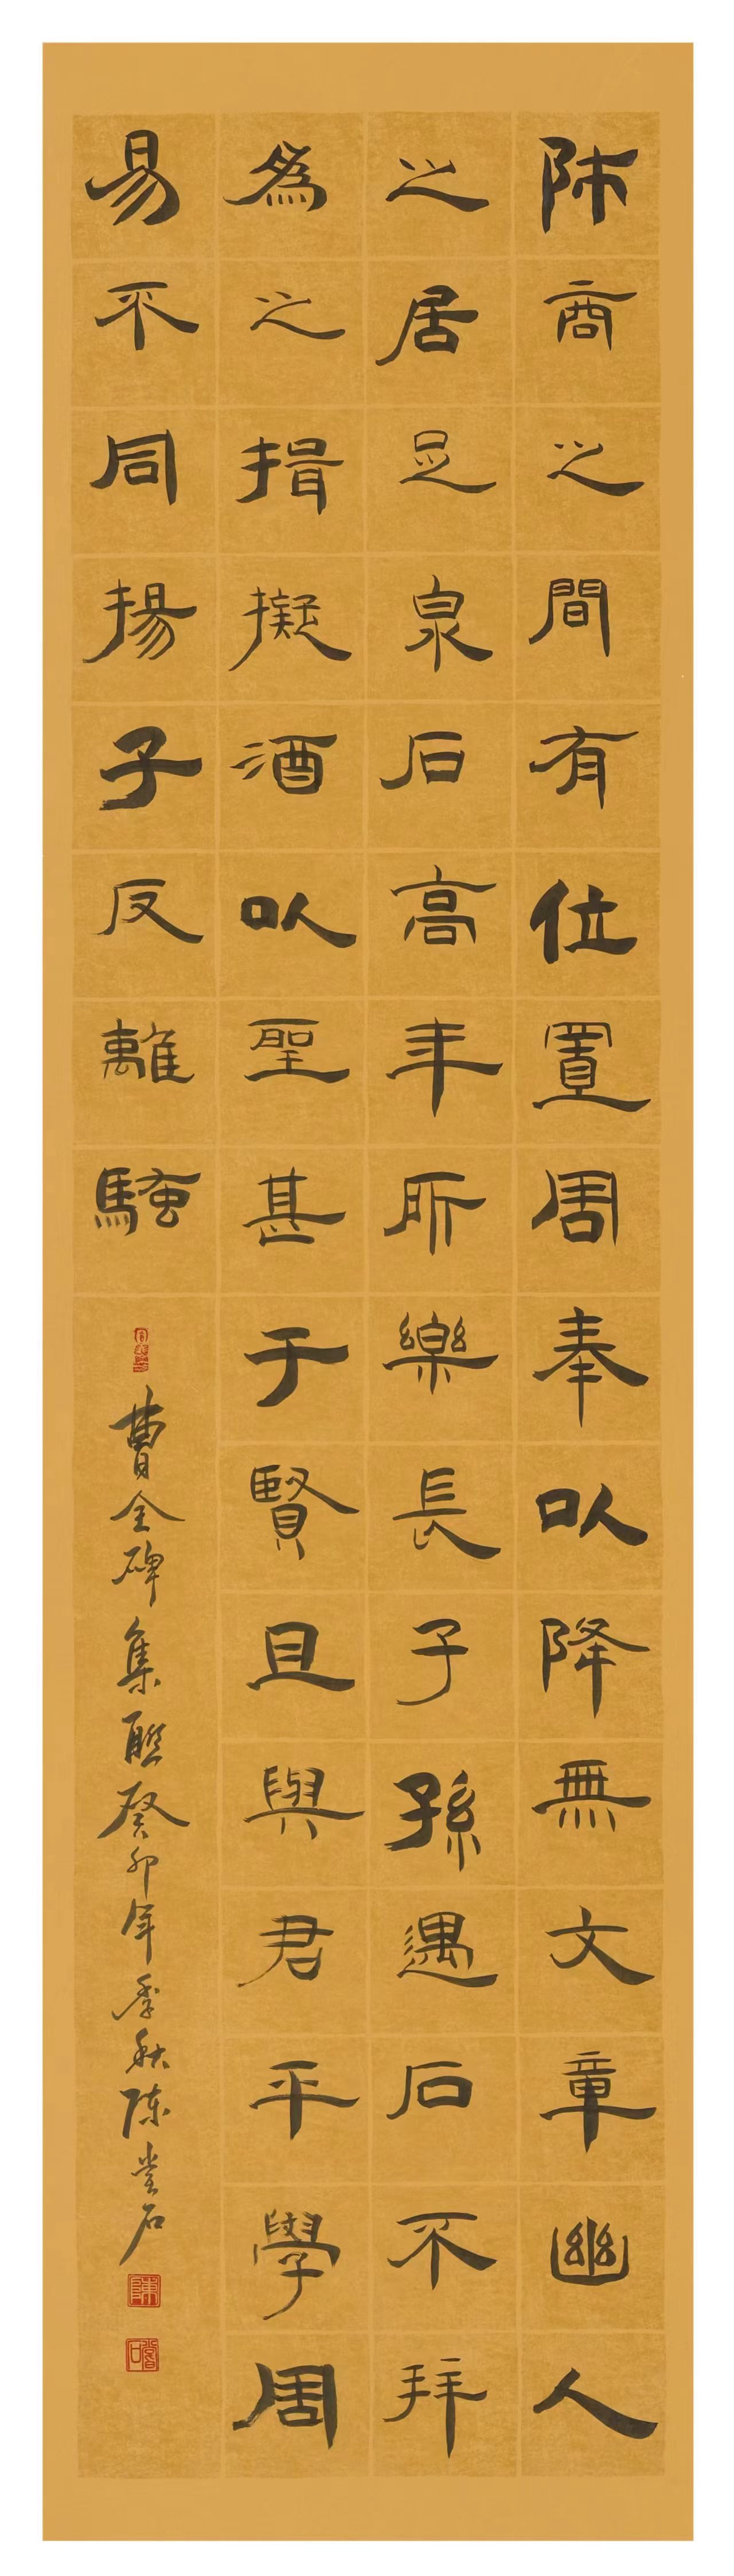 陎商之間有位置周奉以降無文章幽人
之居足泉石高年所樂長子孫遇石不拜
為之揖擬酒以聖甚于賢且與君平學周
易不同揚子反離騷
曹全碑集聯癸卯年季秋陳堂石